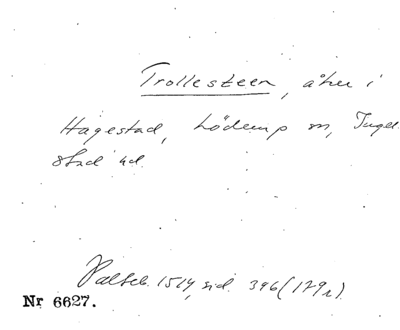 Trollesteen, åker i
Hagestad, Löderup sn, Ingel-
stad hd.
Palteb. 1514, sid. 396 (179r).
Nr 6627.